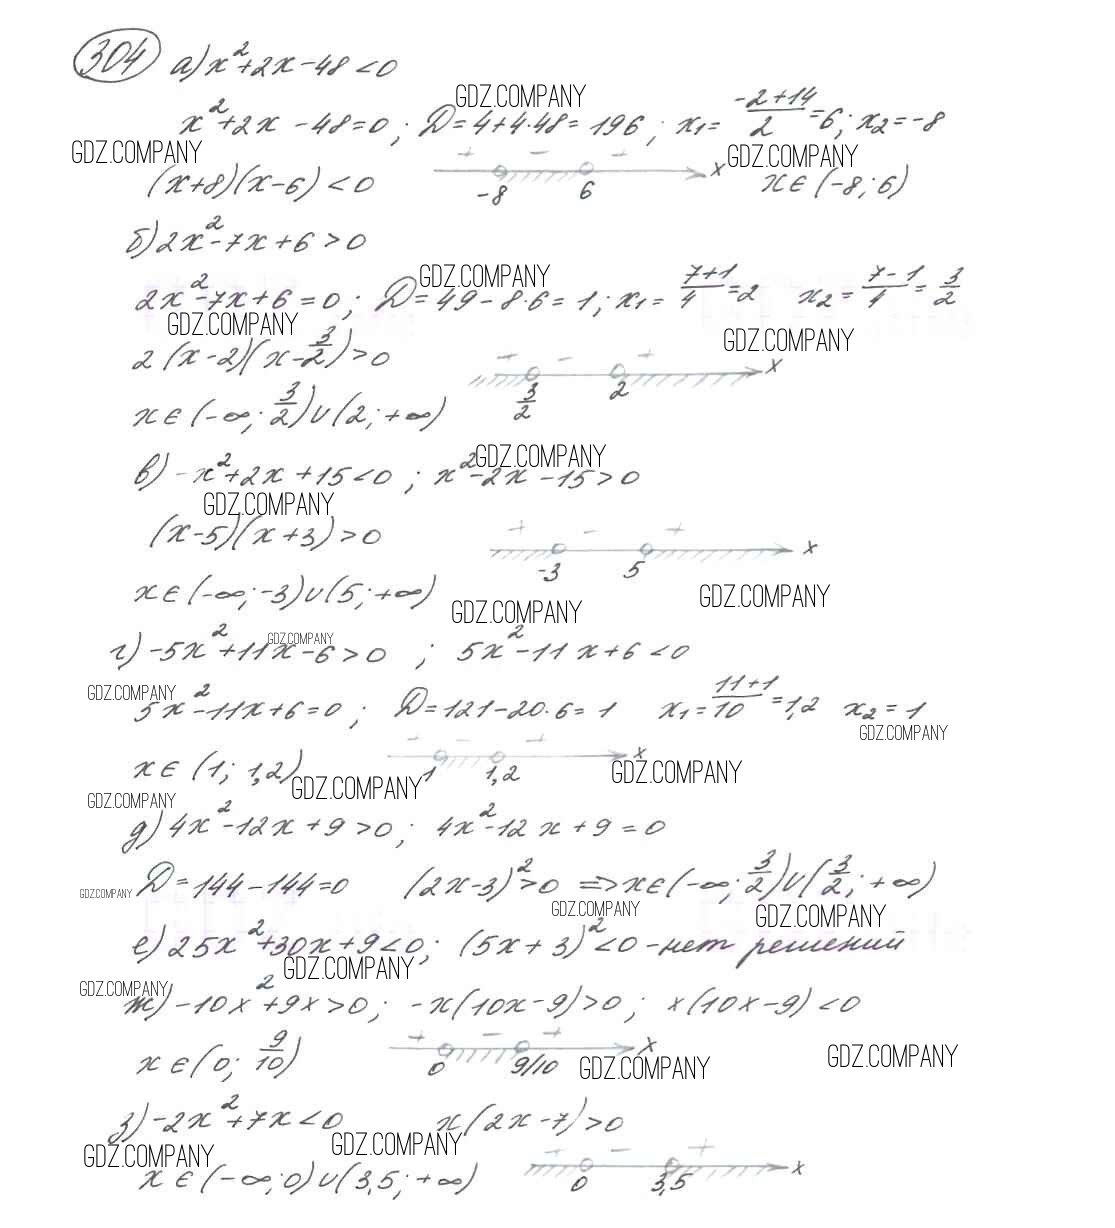 304 а) x²+2x-48<0
GDZ.COMPANY
x²+2x-48=0; D=4+4·48=196; x₁=(-2+14)/2=6; x₂=-8
GDZ.COMPANY GDZ.COMPANY
(x+8)(x-6)<0 + - + -8 6 x x∈(-8;6)
б) 2x²-7x+6>0
GDZ.COMPANY
2x²-7x+6=0; D=49-8·6=1; x₁=(7+1)/4=2 x₂=(7-1)/4=3/2
GDZ.COMPANY GDZ.COMPANY
2(x-2)(x-3/2)>0 + - + 3/2 2 x
x∈(-∞;3/2)∪(2;+∞)
GDZ.COMPANY
в) -x²+2x+15<0; x²-2x-15>0
GDZ.COMPANY
(x-5)(x+3)>0 + - + -3 5 x
x∈(-∞;-3)∪(5;+∞)
GDZ.COMPANY GDZ.COMPANY
GDZ.COMPANY
г) -5x²+11x-6>0; 5x²-11x+6<0
GDZ.COMPANY
5x²-11x+6=0; D=121-20·6=1 x₁=(11+1)/10=1,2 x₂=1
GDZ.COMPANY
x∈(1;1,2) + - + 1 1,2 x
GDZ.COMPANY GDZ.COMPANY
GDZ.COMPANY
д) 4x²-12x+9>0; 4x²-12x+9=0
D=144-144=0 (2x-3)²>0 => x∈(-∞;3/2)∪(3/2;+∞)
GDZ.COMPANY GDZ.COMPANY GDZ.COMPANY
е) 25x²+30x+9<0; (5x+3)²<0 - нет решений
GDZ.COMPANY
GDZ.COMPANY
ж) -10x²+9x>0; -x(10x-9)>0; x(10x-9)<0
x∈(0;9/10) + - + 0 9/10 x
GDZ.COMPANY GDZ.COMPANY
з) -2x²+7x<0 x(2x-7)>0
GDZ.COMPANY GDZ.COMPANY
x∈(-∞;0)∪(3,5;+∞) + - + 0 3,5 x